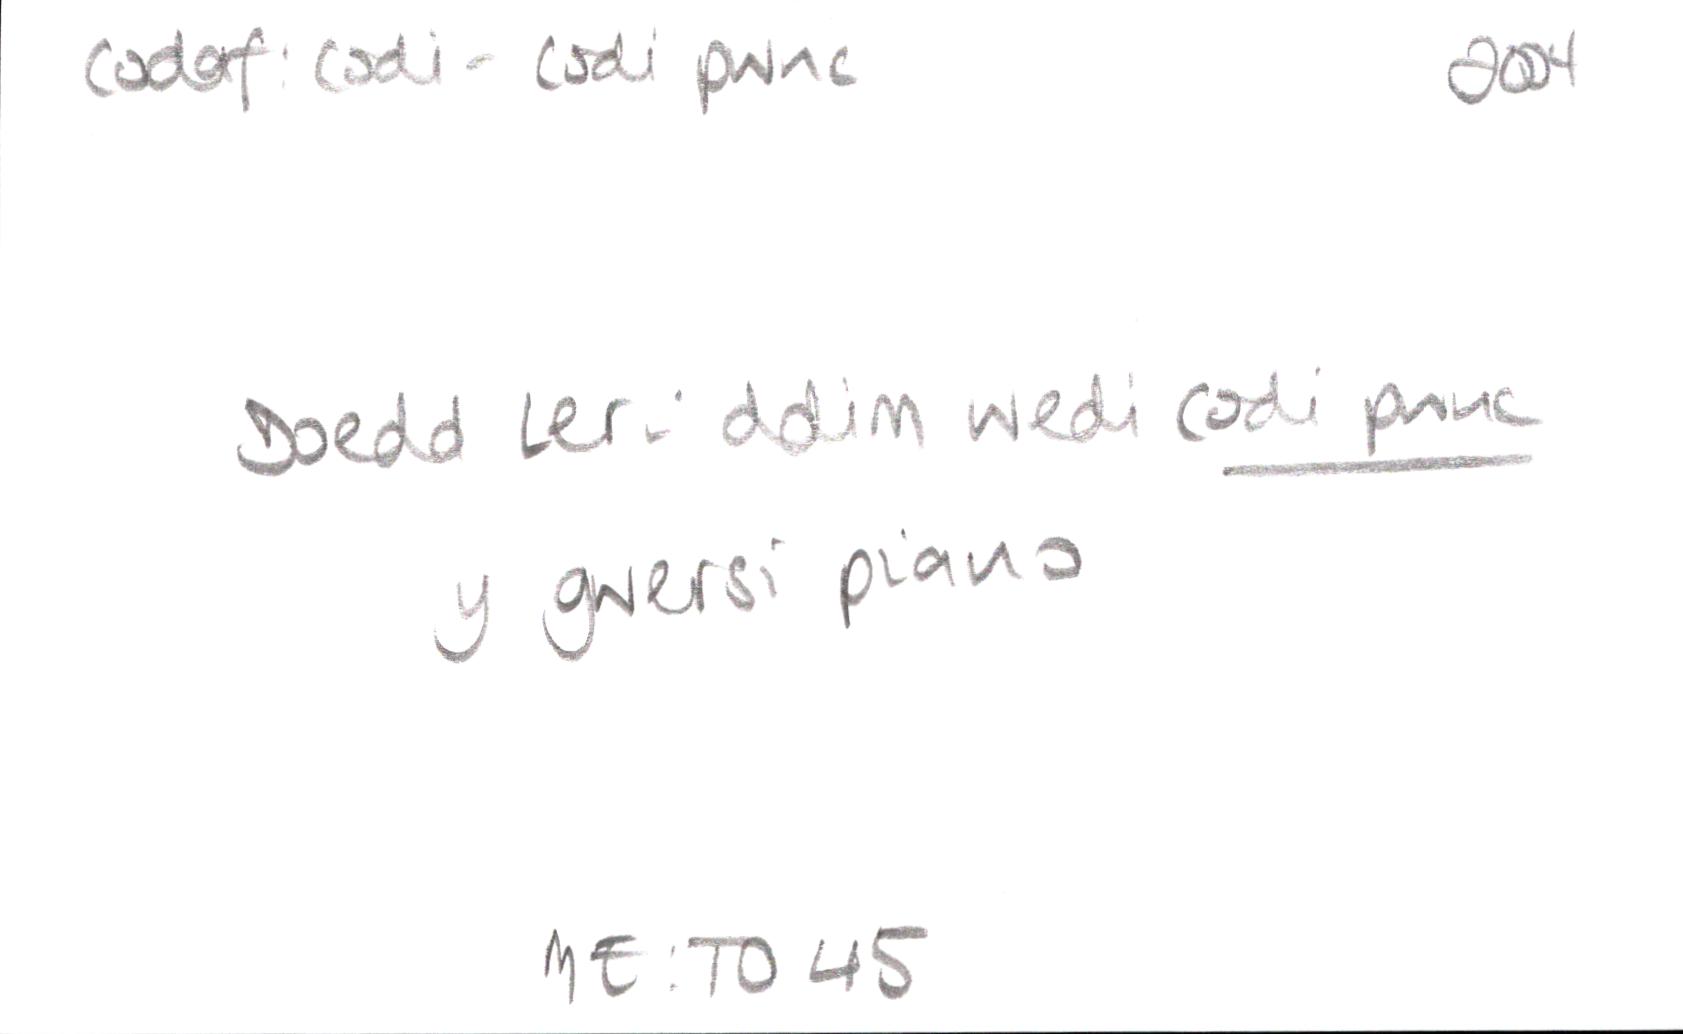 codaf: codi - codi pwnc 2004
Doedd Leri ddim wedi codi pwnc
y gwersi piano
ME: TO 45